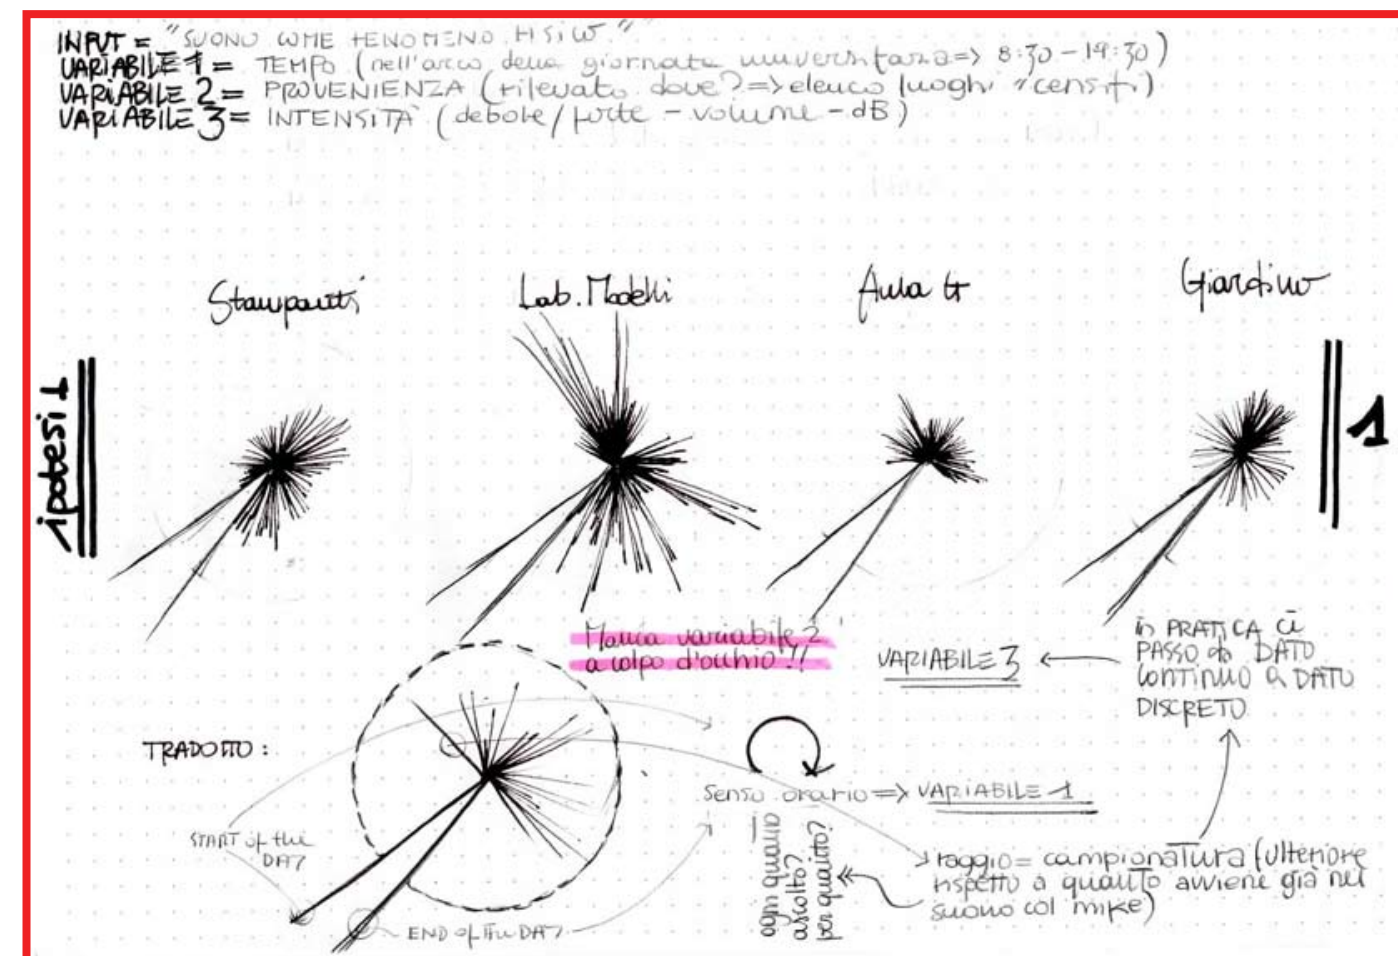 INPUT = "SUONO COME FENOMENO FISICO"
VARIABILE 1 = TEMPO (nell'arco della giornata universitaria => 8:30 - 19:30)
VARIABILE 2 = PROVENIENZA (rilevato dove? => elenco luoghi "censiti")
VARIABILE 3 = INTENSITÀ (debole/forte - volume - dB)
Stampanti
Lab. Modelli
Aula
Giardino
ipotesi 1
1
Manca variabile 2
a colpo d'occhio!!
VARIABILE 3
in PRATICA
PASSO da DATO
CONTINUO a DATO
DISCRETO
TRADOTTO:
Senso orario => VARIABILE 1
START of the
DAY
ogni quanto
ascolto?
per quanto?
raggio = campionatura (ulteriore
rispetto a quanto avviene già nel
suono col mike)
END of the DAY